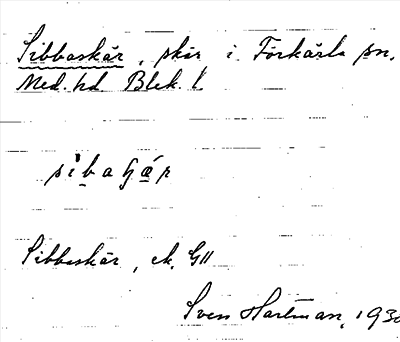 Sibbaskär, skär i Förkärla sn.
Med. hd Blek. l
Sibbaskär, ek. G11
Sven Hartman, 1930